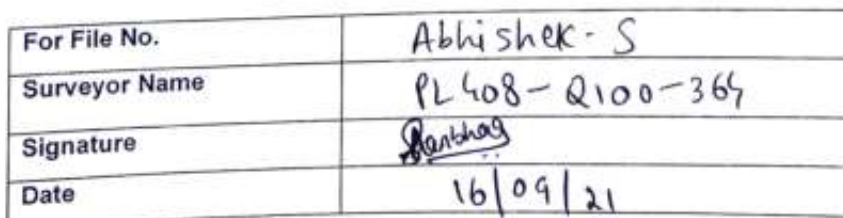 For File No. Abhishek - S
Surveyor Name PL408-Q100-364
Signature
Date 16/09/21